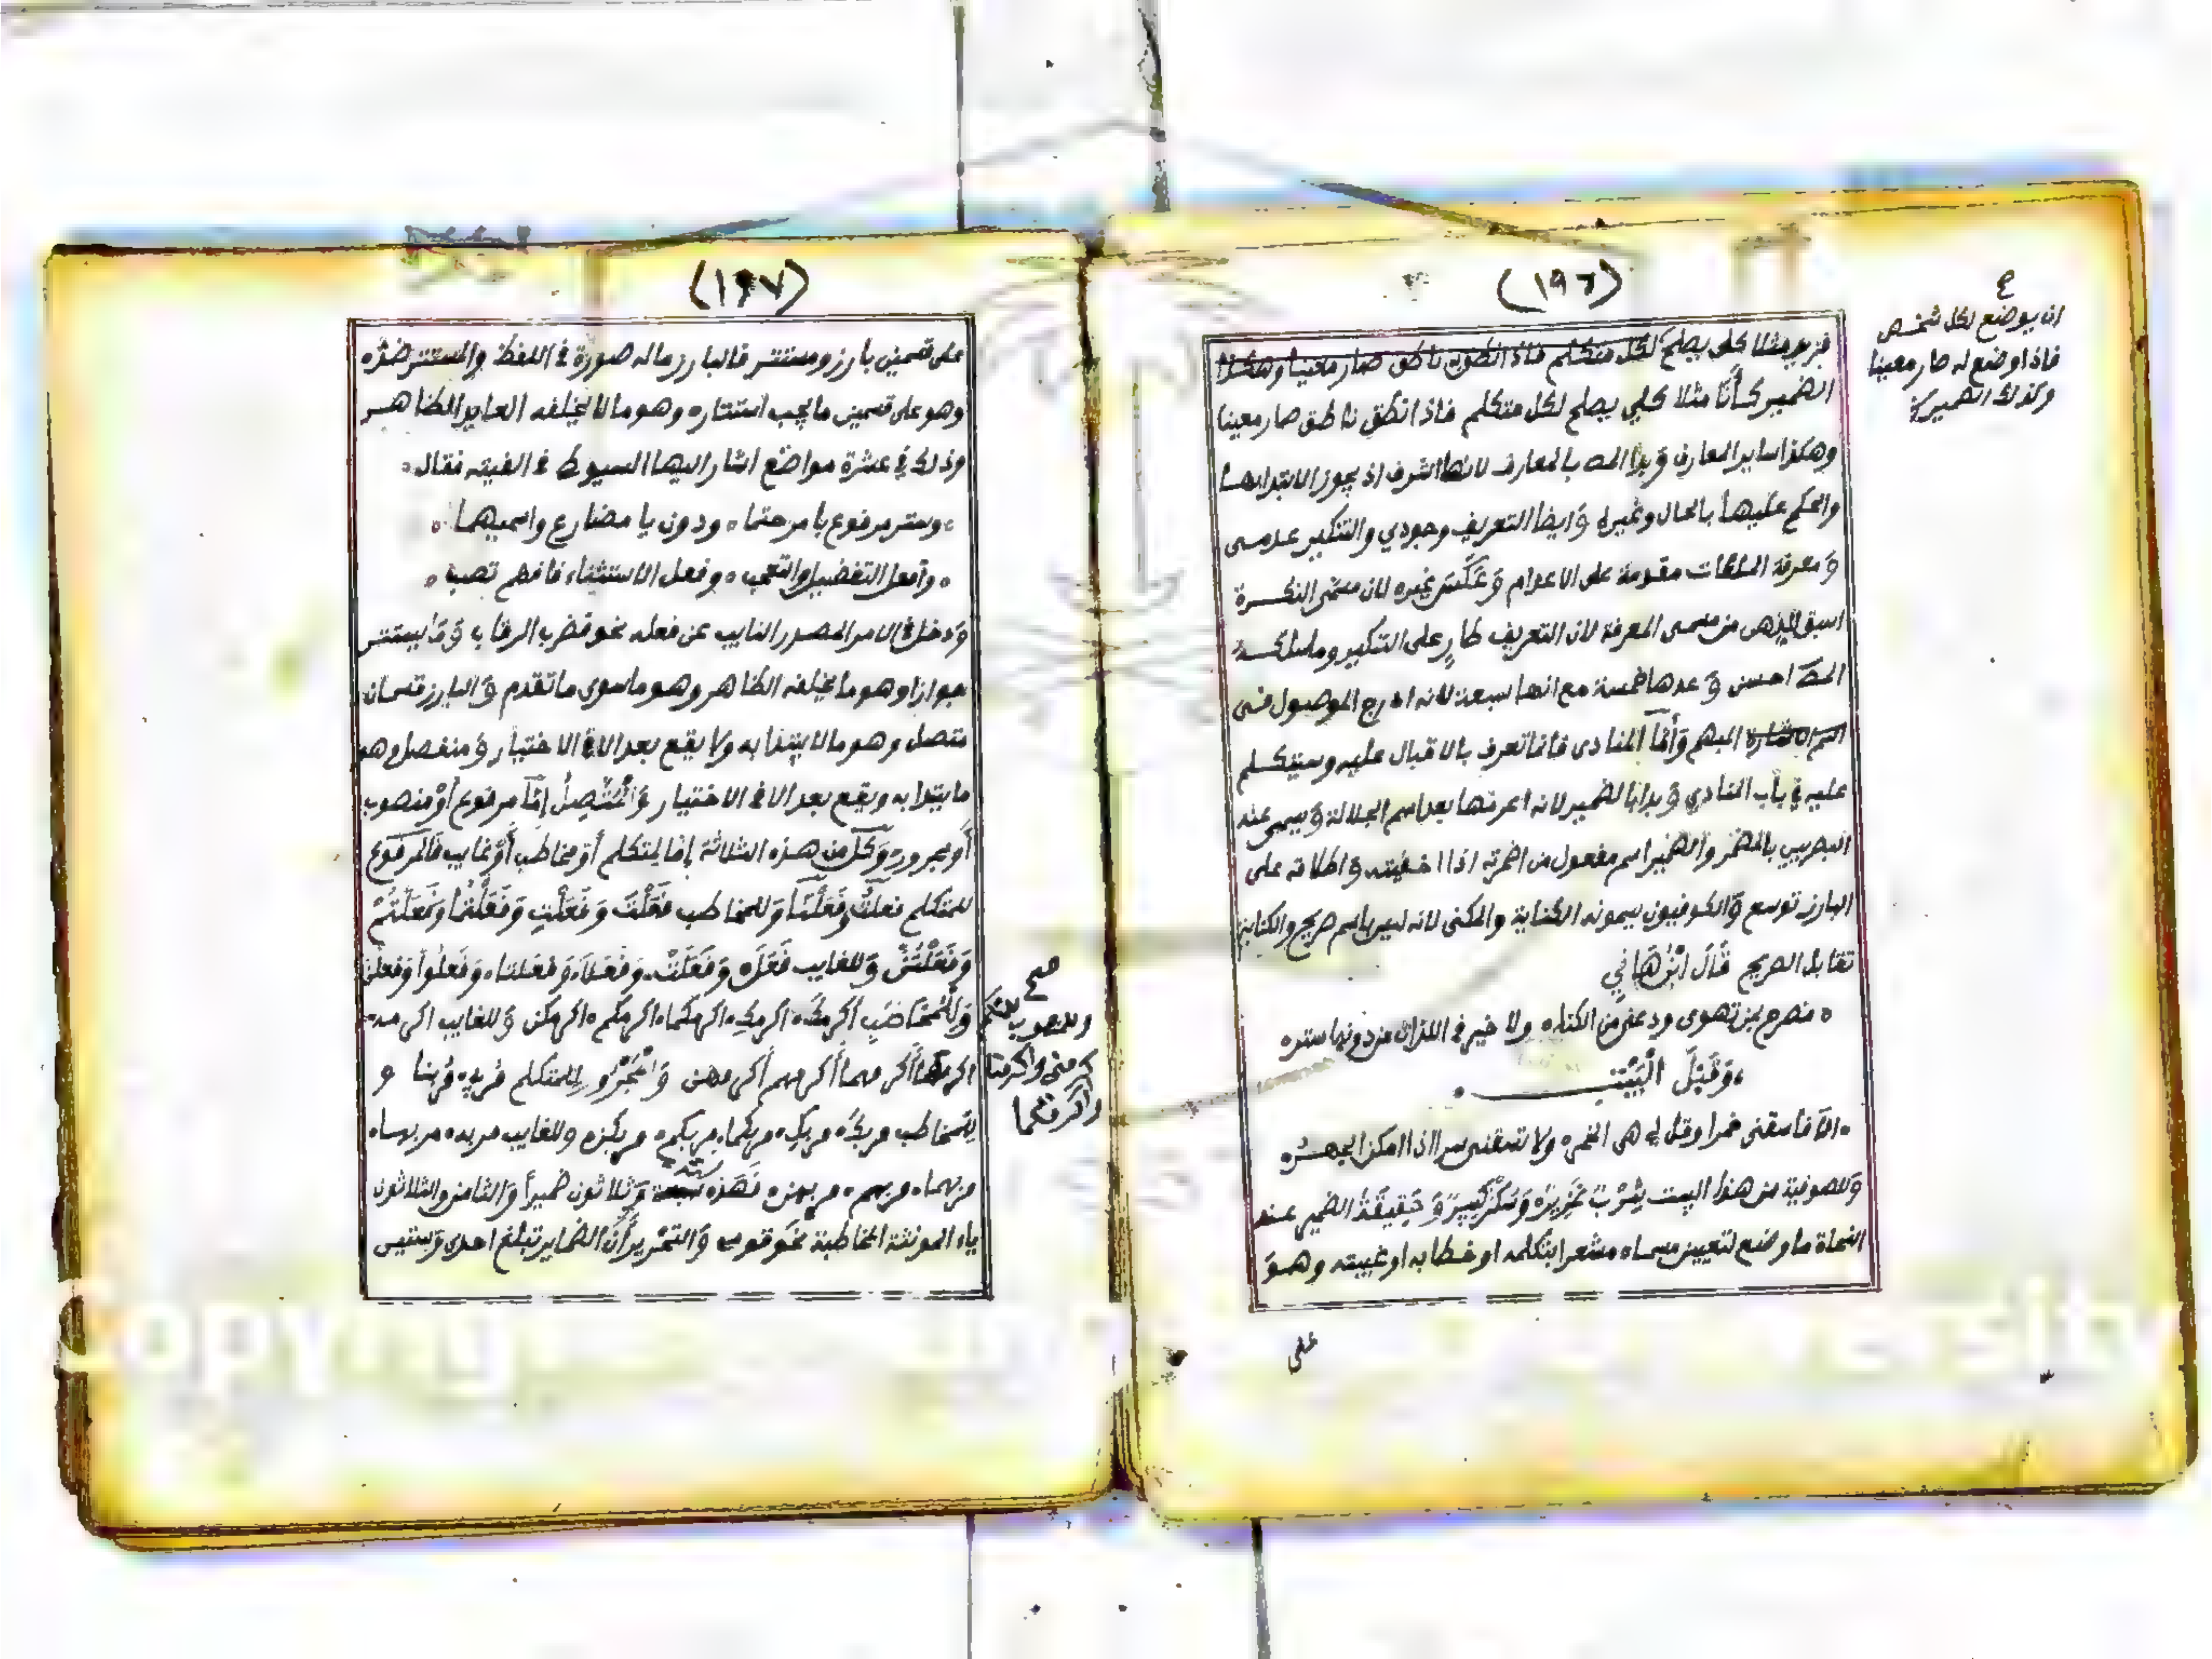 (١٩٦)
ان يوضع لكل شخص
فاذا وضع له صار معينا
وكذلك الضمير
فزيد مثلا كلى يصلح لكل متكلم فاذا نطق به ناطق صار معينا وهكذا
الضمير كأنا مثلا كلي يصلح لكل متكلم فاذا نطق ناطق صار معينا
وهكذا ساير المعارف وبدا المص بالمعارف لانها اشرف اذ يجوز الابتدا بها
والحكم عليها بالحال وغيره وايضا التعريف وجودي والتنكير عدمى
ومعرفة الملكات مقدمة على الاعدام وعكس غيره لان مسمى النكرة
اسبق للذهن من مسمى المعرفة لان التعريف طارٍ على التنكير وما سلكه
المص احسن وعدها خمسة مع انها سبعة لانه ادرج الموصول فى
اسم الاشارة المبهم وأما المنادى فانما تعرف بالاقبال عليه وسيتكلم
عليه في باب النادي وبدا بالضمير لانه اعرفها بعد اسم الجلالة ويسمى عند
البصريين بالمضمر والضمير اسم مفعول من اضمرته اذا اخفيته واطلاقه على
البارز توسع والكوفيون يسمونه الكناية والمكنى لانه ليس باسم صريح والكناية
تقابل الصريح قال ابن هاني
فصرح بمن تهوى ودعني من الكنا ولا خير فى اللذات من دونها ستر
وقبل البيت
الا فاسقنى خمرا وقل لي هى الخمر ولا تسقنى سرا اذا امكن الجهر
وللصوفية من هذا البيت شرب غزيره وسكر كبير وحقيقة الضمير عند
النحاة ما وضع لتعيين مسماه مشعرا بتكلمه او خطابه او غيبته وهو
على
(١٩٧)
على قسمين بارز ومستتر فالبارز ماله صورة في اللفظ والمستتر ضده
وهو على قسمين ما يجب استتاره وهو مالا يخلفه العايد الظاهر
وذلك في عشرة مواضع اشار اليها السيوطى فى الفيته فقال
وستر مرفوع بامر حتما ودون يا مضارع واسميهما
وأفعل التفضيل والتعجب وفعل الاستثناء فافهم تصب
ودخل في الامر المصدر النايب عن فعله نحو فضرب الرقاب وما يستتر
جوازا وهو ما يخلفه الظاهر وهو ماسوى ما تقدم والبارز قسمان
متصل وهو مالا يبتدا به ولا يقع بعد الا في الاختيار ومنفصل وهو
ما يبتدا به ويقع بعد الا فى الاختيار والمتصل إما مرفوع أو منصوب
أو مجرور وكل من هذه الثلاثة إما لمتكلم أو مخاطب أو غايب فالمرفوع
للمتكلم فعلت وفعلنا وللمخاطب فعلت وفعلت وفعلتما وفعلتم
وفعلتن وللغايب فعل وفعلت وفعلا وفعلتا وفعلوا وفعلن
صح
وللمنصوب للمتكلم
اكرمنى واكرمنا
وللمخاطب أكرمك اكرمك اكرمكما اكرمكم اكرمكن وللغايب اكرمه
اكرمها أكرمهما أكرمهم أكرمهن والمجرور للمتكلم مربي مربنا و
للمخاطب مربك مربك مربكما مربكم مربكن وللغايب مربه مربها
مربهما مربهم مربهن فهذه ستة وثلاثون ضميراً والثامن والثلاثون
ياء المونثة المخاطبة نحو قومي والتحرير أن الضماير تبلغ احدى وستين